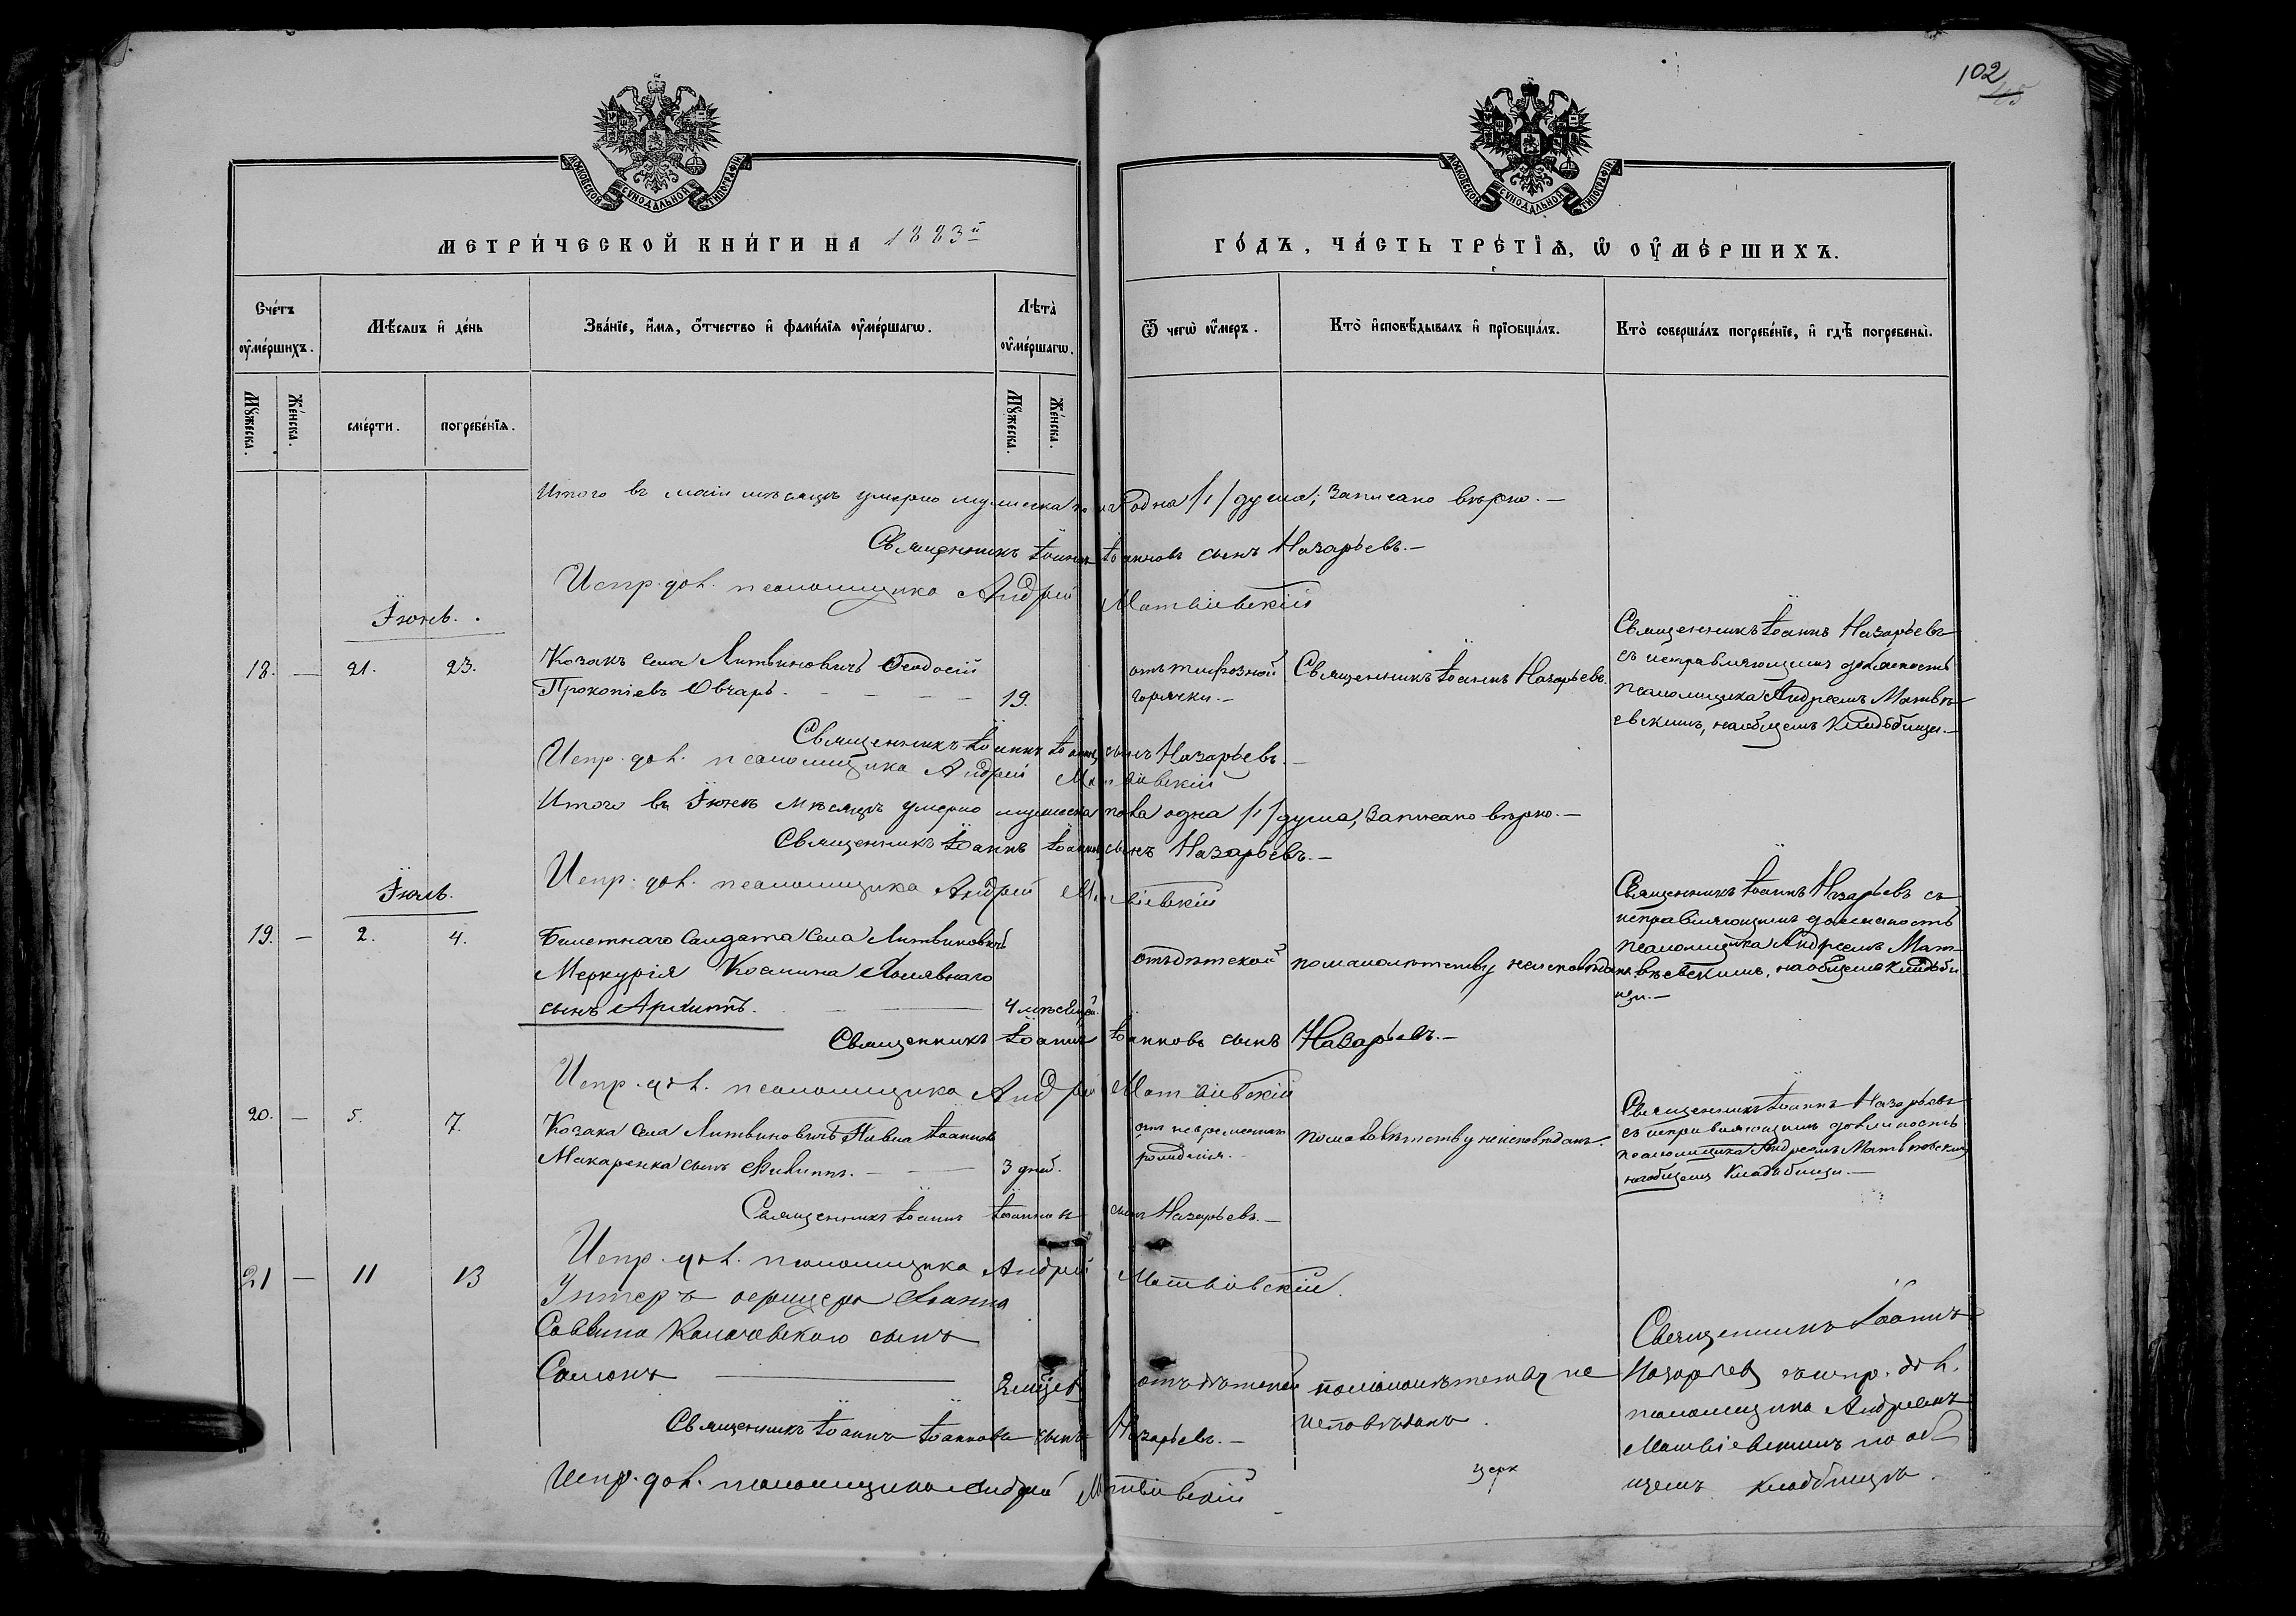 102
МОСКОВСКОЙ СУНОДАЛЬНОЙ ТИПОГРАФІИ
МОСКОВСКОЙ СУНОДАЛЬНОЙ ТИПОГРАФІИ
МЕТРИ́ЧЕСКОЙ КНИ́ГИ НА 1883й
ГО́ДЪ, ЧА́СТЬ ТРЕ́ТІѦ, Ѡ ОУ҆МЕ́РШИХЪ.
Сче́тъ оу҆ме́ршихъ.
Мѣ́сѧцъ и҆ де́нь
Зва́нїе, и҆́мѧ, ѻ҆́тчество и҆ фами́лїѧ оу҆ме́ршагѡ.
Лѣ̀та оу҆ме́ршагѡ.
Ѿ чегѡ̀ оу҆́меръ.
Кто̀ и҆сповѣ́дывалъ и҆ прїобща́лъ.
Кто̀ соверша́лъ погребе́нїе, и҆ гдѣ̀ погребены̀.
Мꙋ́жеска.
Же́нска.
сме́рти.
погребе́нїѧ.
Мꙋ́жеска.
Же́нска.
Итого въ маіи мѣсяцѣ умерло мужеска пола одна /1/ душа; Записано вѣрно.—
Священникъ Іоаннъ Іоанновъ сынъ Назарьевъ.—
Испр. дол. псаломщика Андрей Матвіевскій
Іюнь.
18. — 21. 23.
Козакъ села Литвиновичъ Ѳеодосій
Прокопіевъ Овчаръ. — 19.
отъ тифозной
горячки.—
Священникъ Іоаннъ Назарьевъ.
Священникъ Іоаннъ Назарьевъ
съ исправляющимъ должность
псаломщика Андреемъ Матвѣ-
евскимъ, на общемъ кладбищи.—
Священникъ Іоаннъ Іоаннов сынъ Назарьевъ.—
Испр. дол. псаломщика Андрей Матвіевскій
Итого въ Іюнѣ мѣсяцѣ умерло мужеска пола одна /1/ душа; Записано вѣрно.—
Священникъ Іоаннъ Іоаннов сынъ Назарьевъ.—
Испр. дол. псаломщика Андрей Матвіевскій
Іюль.
19. — 2. 4.
Билетнаго Солдата села Литвиновичъ
Меркурія Космина
сынъ Архиппъ. — 4 мѣсяцей.
отъ дѣтской
по малолѣтству неисповѣданъ.
Священникъ Іоаннъ Назарьевъ съ
исправляющимъ должность
псаломщика Андреемъ Мат-
вѣевскимъ, на общемъ кладби
щи.—
Священникъ Іоаннъ Іоанновъ сынъ Назарьевъ.—
Испр. дол. псаломщика Андрей Матвіевскій
20. — 5. 7.
Козака села Литвиновичъ Павла Іоаннова
Макаренка сынъ Филиппъ. — 3 дней.
рожденія.
по малолѣтству неисповѣданъ.
Священникъ Іоаннъ Назарьевъ
съ исправляющимъ должность
псаломщика Андреемъ Матвѣевскимъ
на общемъ кладбищи.—
Священникъ Іоаннъ Іоаннов сынъ Назарьевъ.—
Испр. дол. псаломщика Андрей Матвіевскій.
21 — 11 13
Унтеръ офицера Іоанна
Саввина сынъ
Самсонъ —
отъ дѣтской
по малолѣтству не
исповѣданъ.
Священникъ Іоаннъ
Назарьевъ съ испр. дол.
псаломщика Андреемъ
Матвіевскимъ на об-
щемъ кладбищѣ.
Священникъ Іоаннъ Іоанновъ сынъ Назарьевъ.—
Испр. дол. псаломщика Андрей Матвіевскій
церк